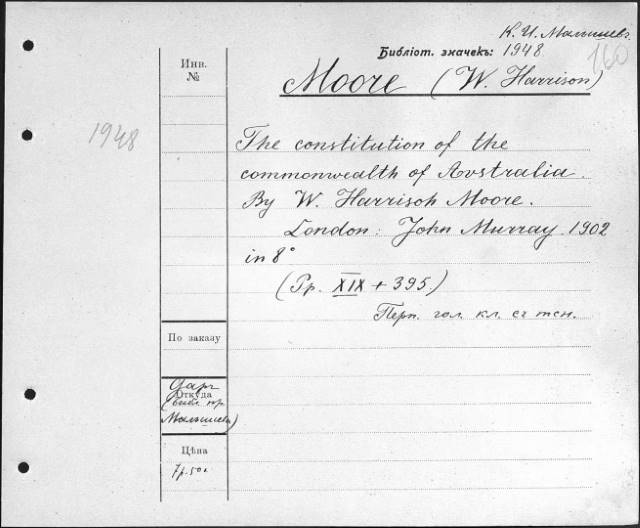 К. И. Малышевъ.
Библіот. значекъ: 1948.
160
Инв.
№
Moore (W. Harrison)
1948
The constitution of the
commonwealth of Avstralia.
By W. Harrisoh Moore.
London: John Murray. 1902
in 8°
(Pp. XIX + 395.)
гол. кл. съ тсн.
По заказу
Откуда
Малышева)
Цѣна
7р. 50к.